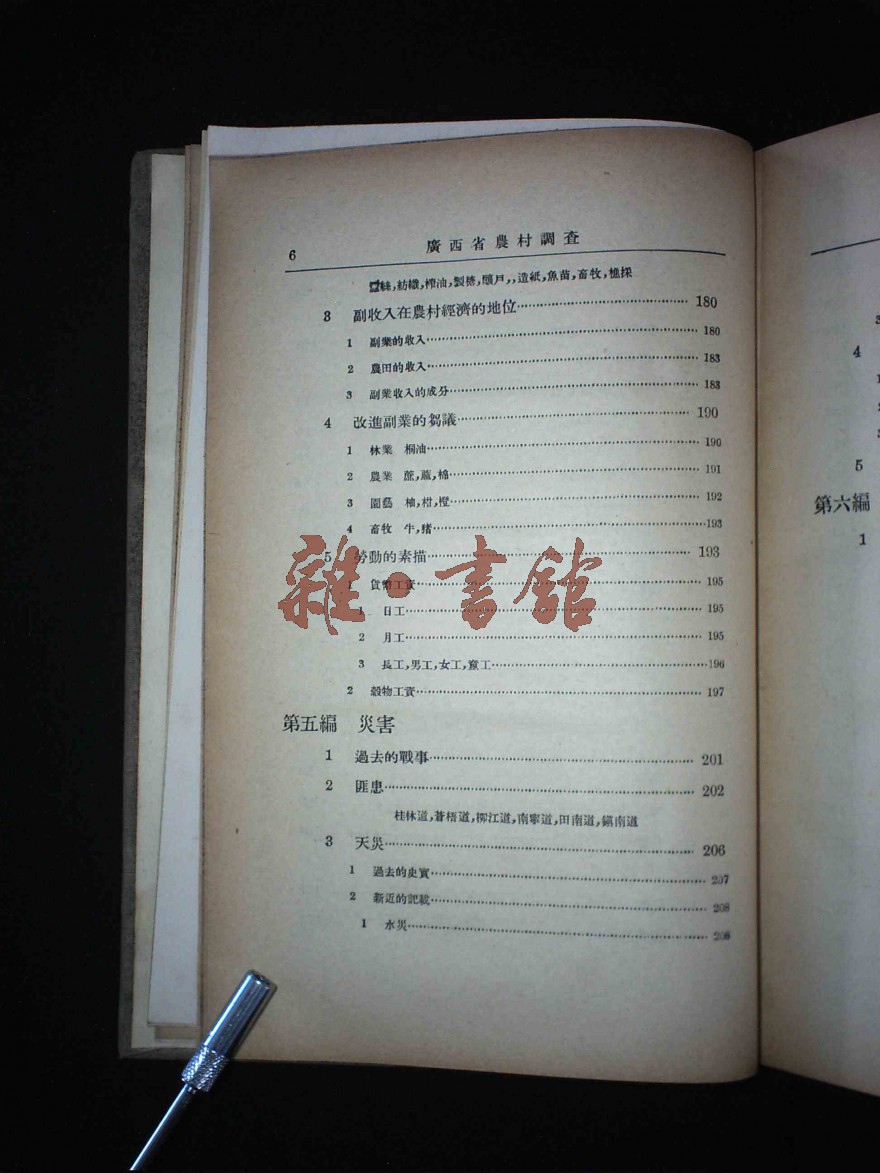 6 廣西省農村調查
絲,紡織,榨油,製糖,釀戶,,造紙,魚苗,畜牧,樵採
3 副收入在農村經濟的地位 180
1 副業的收入 180
2 農田的收入 183
3 副業收入的成分 183
4 改進副業的芻議 190
1 林業 桐油 190
2 農業 蔗,蔴,棉 191
3 園藝 柚,柑,橙 192
4 畜牧 牛,猪 193
5 勞動的素描 193
1 貨幣工資 195
1 日工 195
2 月工 195
3 長工,男工,女工,童工 196
2 穀物工資 197
第五編 災害
1 過去的戰事 201
2 匪患 202
桂林道,蒼梧道,柳江道,南寧道,田南道,鎭南道
3 天災 206
1 過去的史實 207
2 新近的記載 208
1 水災 208
雜·書館
3
4
1
2
3
5
第六編
1